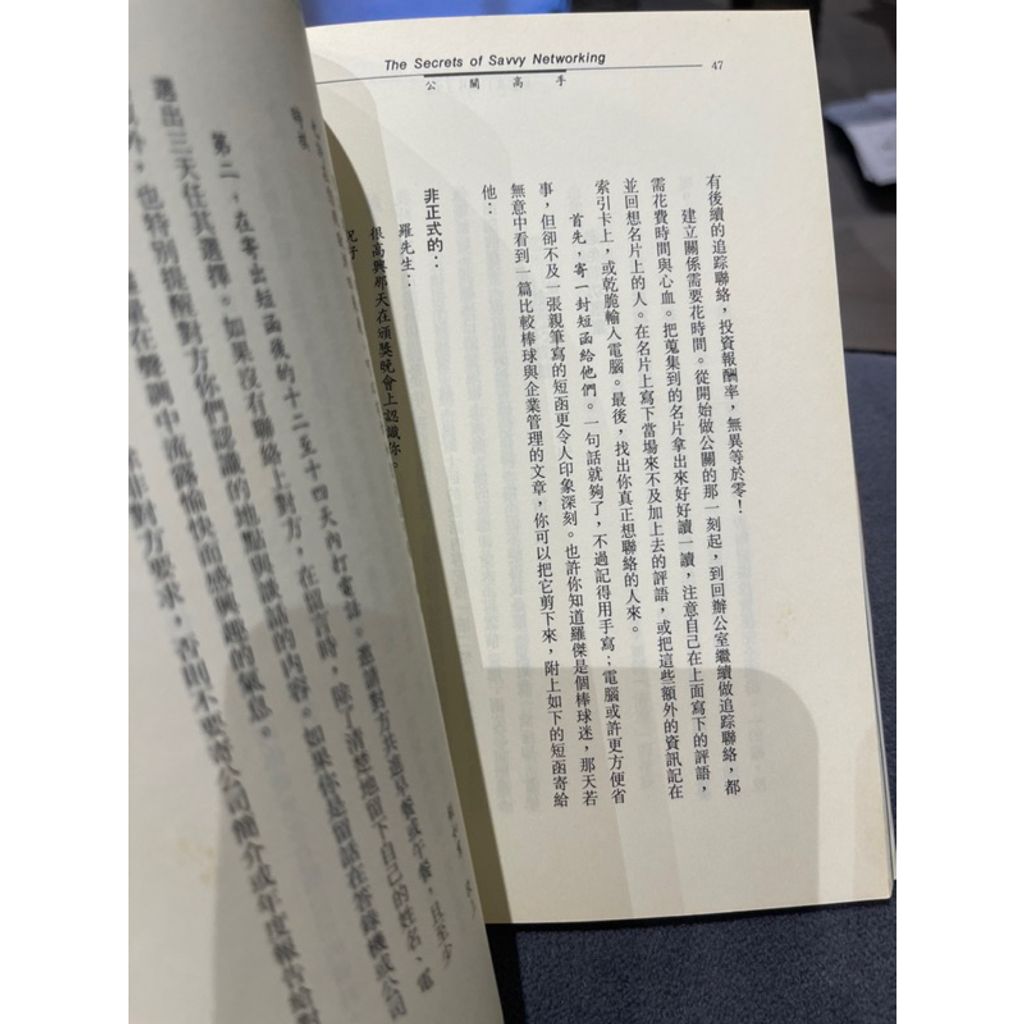 The Secrets of Savvy Networking
47
公關高手
有後續的追踪聯絡，投資報酬率，無異等於零！
建立關係需要花時間。從開始做公關的那一刻起，到回辦公室繼續做追踪聯絡，都
需花費時間與心血。把蒐集到的名片拿出來好好讀一讀，注意自己在上面寫下的評語，
並回想名片上的人。在名片上寫下當場來不及加上去的評語，或把這些額外的資訊記在
索引卡上，或乾脆輸入電腦。最後，找出你真正想聯絡的人來。
首先，寄一封短函給他們。一句話就夠了，不過記得用手寫；電腦或許更方便省
事，但卻不及一張親筆寫的短函更令人印象深刻。也許你知道羅傑是個棒球迷，那天若
無意中看到一篇比較棒球與企業管理的文章，你可以把它剪下來，附上如下的短函寄給
他：
非正式的：
羅先生：
很高興那天在頒獎晚會上認識你。
第二，在寄出短函後的十二至十四天內打電話。邀請對方共進早餐或午餐，且至少
選出三天任其選擇。如果沒有聯絡上對方，在留言時，除了清楚地留下自己的姓名、電
也特別提醒對方你們認識的地點與談話的內容。如果你是留話在答錄機或公司
在聲調中流露愉快而感興趣的氣息。
非對方要求，否則不要寄公司簡介或年度報告給對